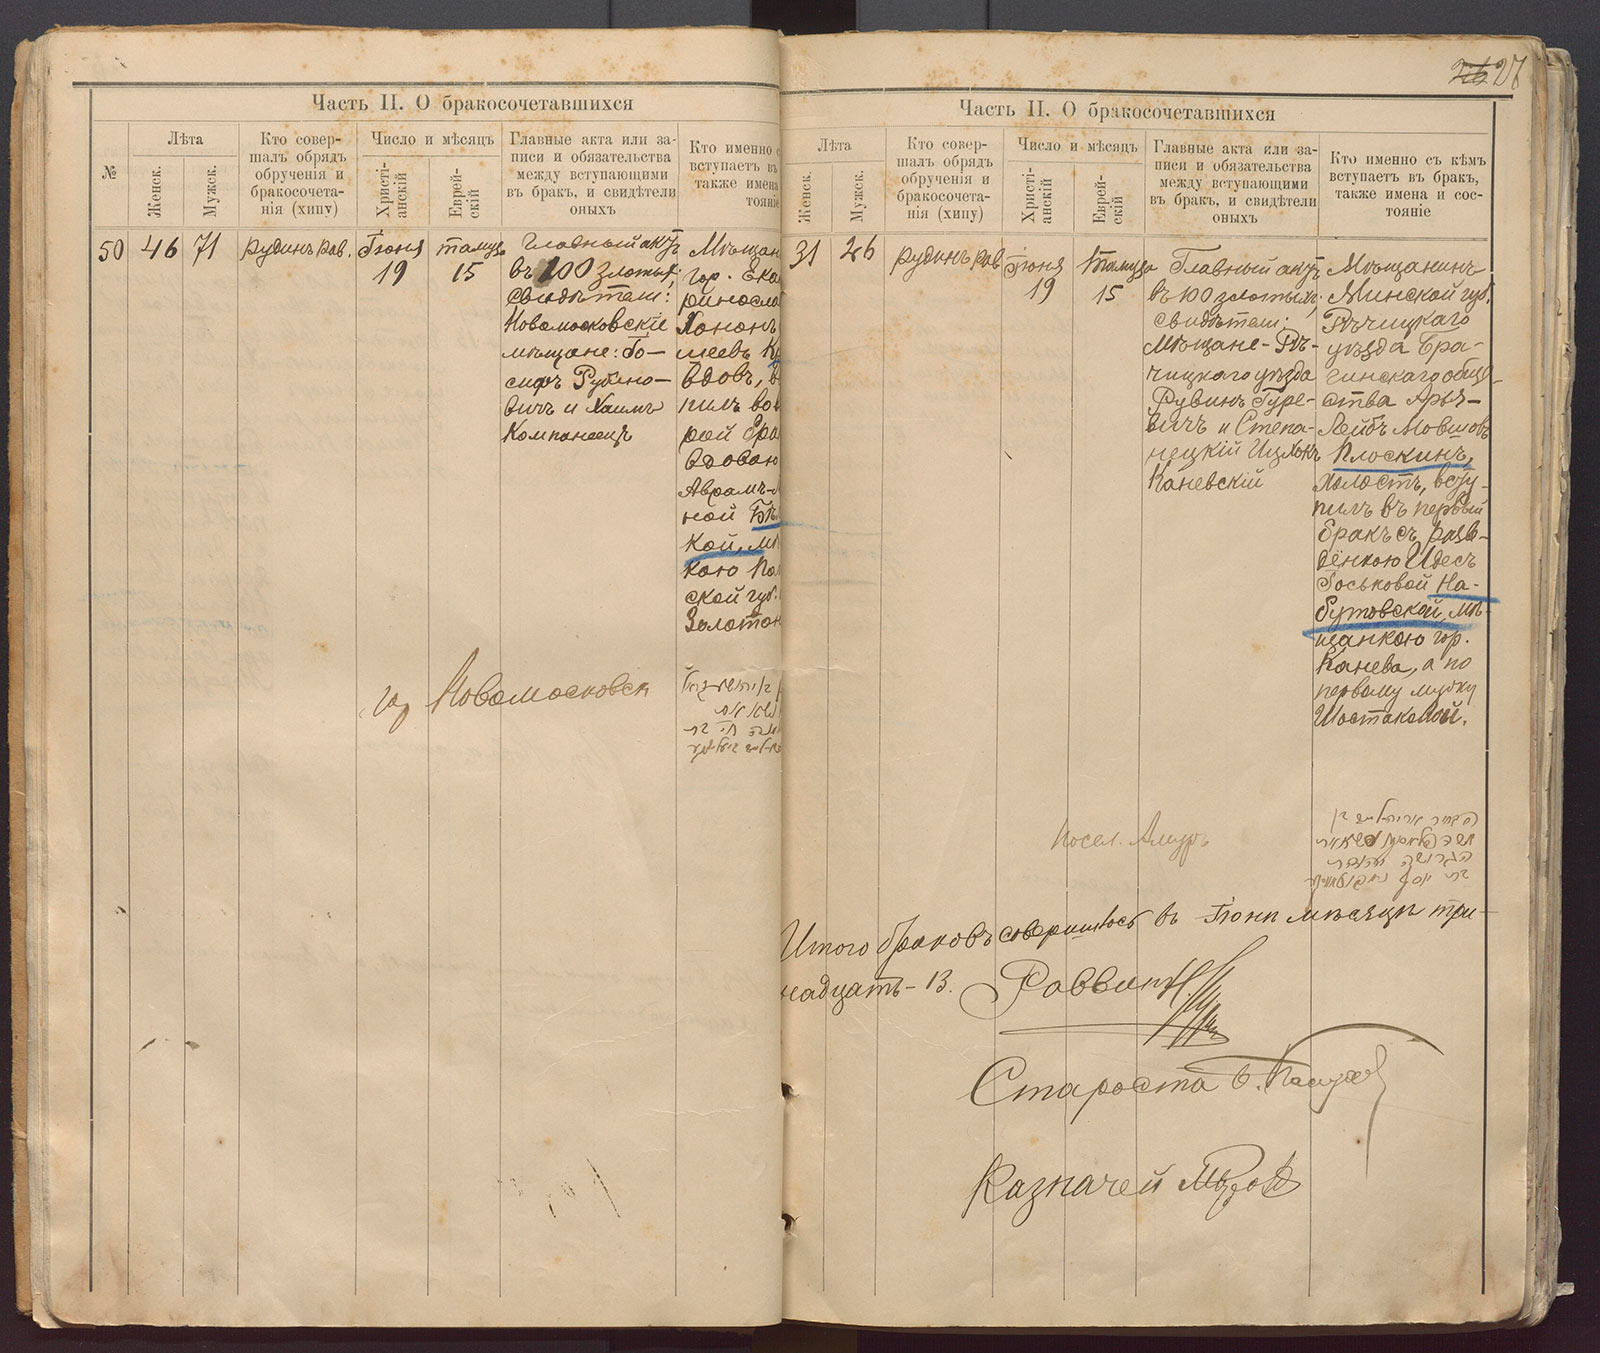 Часть II. О бракосочетавшихся
№
Лѣта
Женск.
Мужск.
Кто совер-
шалъ обрядъ
обрученія и
бракосочета-
нія (хипу)
Число и мѣсяцъ
Христі-
анскій
Еврей-
скій
Главные акта или за-
писи и обязательства
между вступающими
въ бракъ, и свидѣтели
оныхъ
Кто именно с
вступаетъ въ
также имена
тояніе
50
46
71
Рудинъ рав.
Іюня
19
тамуза
15
Главный актъ
въ 100 злотых;
свидѣтели:
Новомосковскіе
мѣщане: Іо-
сифъ Рубино-
вичъ и Хаимъ
Компанеецъ
Мѣщан
гор. Ека
ринослав
Хононъ
меевъ
вдовъ, в
пилъ во в
рой бра
вдовою
Аврамъ-
ной Бѣ
кой, мѣ
кою Пол
ской губ.
Золотон
гор Новомосковск
26 27
Часть II. О бракосочетавшихся
Лѣта
Женск.
Мужск.
Кто совер-
шалъ обрядъ
обрученія и
бракосочета-
нія (хипу)
Число и мѣсяцъ
Христі-
анскій
Еврей-
скій
Главные акта или за-
писи и обязательства
между вступающими
въ бракъ, и свидѣтели
оныхъ
Кто именно съ кѣмъ
вступаетъ въ бракъ,
также имена и сос-
тояніе
31
26
Рудинъ рав
Іюня
19
Тамуза
15
Главный актъ
въ 100 злотыхъ;
свидѣтели:
Мѣщане - Рѣ-
чицкаго уѣзда
Рувинъ Гуре-
вичъ и Степа-
нецкій Ицхокъ
Каневскій
Мѣщанинъ
Минской губ.
Рѣчицкаго
уѣзда Бра-
гинскаго обще-
ства Арья-
Лейбъ Мовшовъ
Плоскинъ,
холостъ, всту-
пилъ въ первый
бракъ съ разве-
дёнкою Идесъ
Іоськовой На-
бутовской, мѣ-
щанкою гор.
Канева, а по
первому мужу
Шостаковой.
посел. Амуръ
Итого браковъ совершилось въ Іюнѣ мѣсяцѣ три-
надцать - 13.
Раввинъ
Староста
Казначей